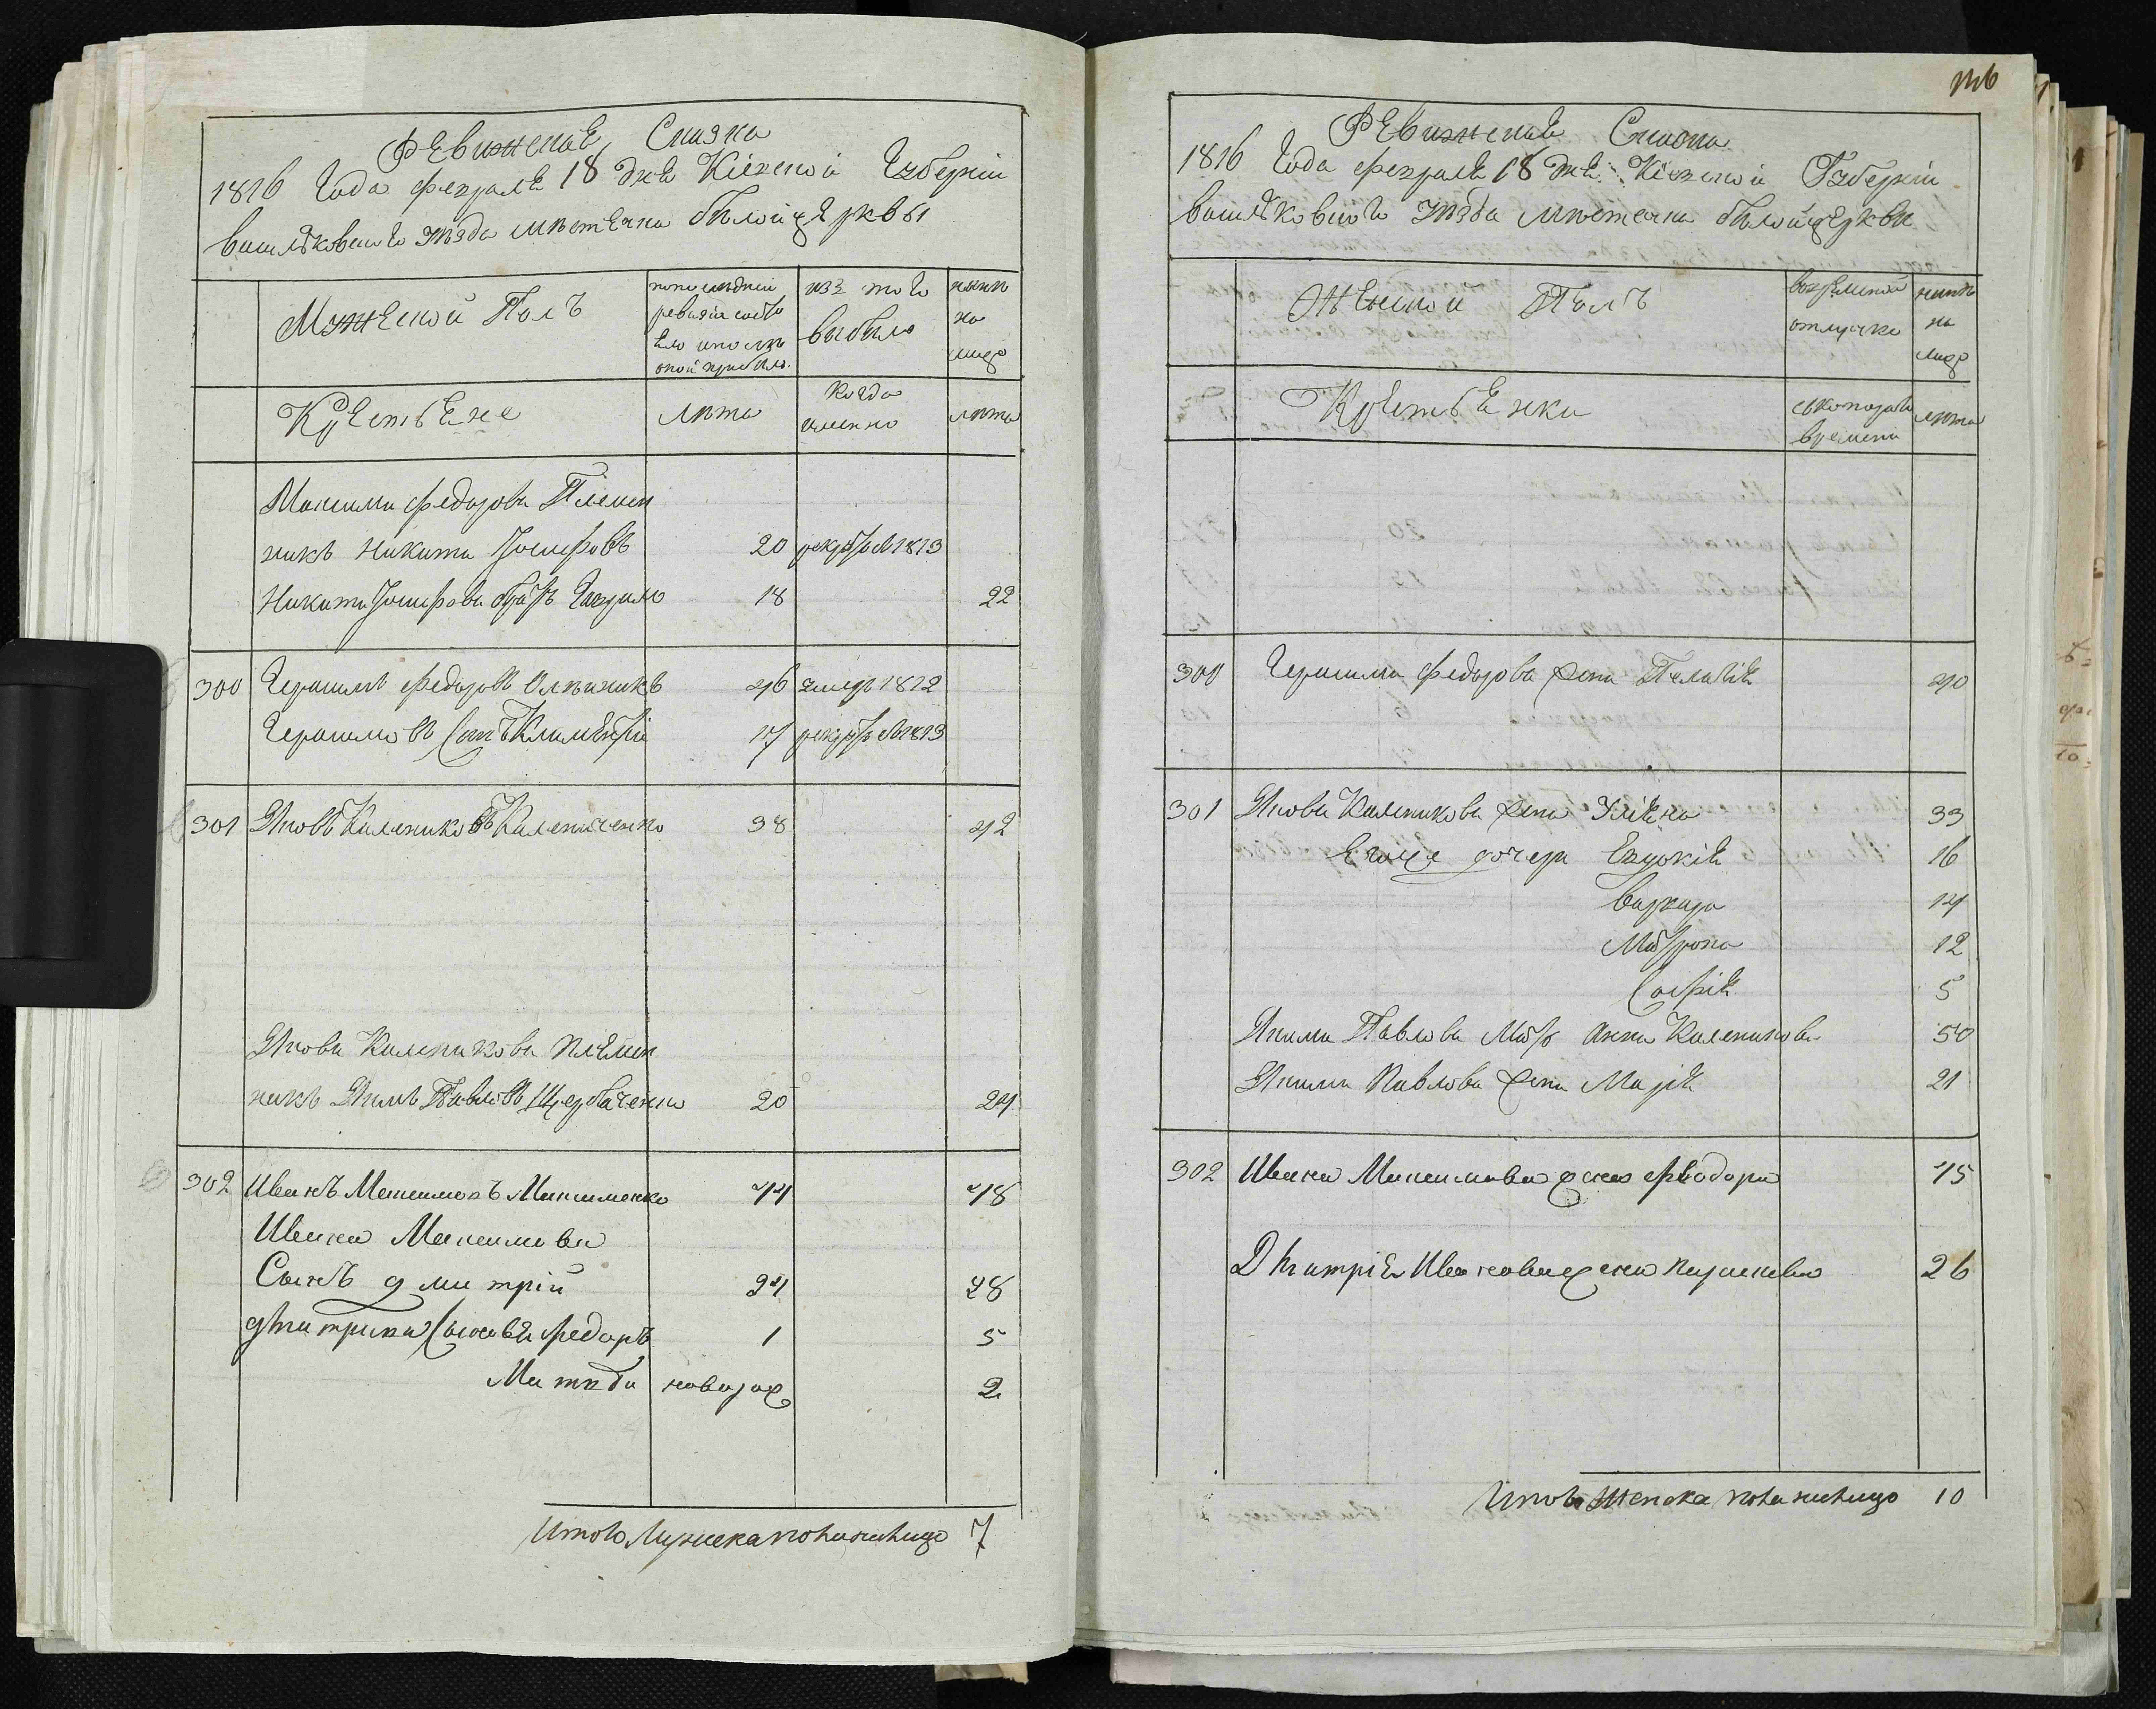 Ревижская Сказка
1816 Года февраля 18 дня Кіевской Губерніи
василковского уѣзда мѣстечка бѣлойцеркви
Мужеской Полъ
попоследней
ревизіи состо
яло ипослѣ
оной прибыло
изъ того
выбыло
нынѣ
на
лицо
Крестьяне
лѣта
когда
именно
лѣта
Максима федорова Племен
никъ Никита Іосифовъ 20 рекрутъ 1813
Никиты Іосифова братъ Гаврило 18 22
300 Герасимъ федоровъ Олѣйникъ 46 умеръ 1812
Герасимовъ Сынъ Климентій 17 рекрутъ 1813
301 Яковъ Калениковъ Калениченко 38 42
Якова Каленикова племен
никъ Якимъ Павловъ Щербаченко 20 24
302 Иванъ Максимовъ Максименко 44 48
Ивана Максимова
Сынъ дмитрій 24 28
дмитрия Сыновья федоръ 1 5
Матвѣй новорож 2
Итого Мужеска пола налицо 7
Ревижская Сказка
1816 Года февраля 18 дня Кіевской Губерніи
василковского уѣзда мѣстечка бѣлойцеркви
Женской Полъ
вовременной
отлучке
нынѣ
на
лицо
Крестьянки
ськоторого
времени
лѣта
300 Герасима федорова жена Пелагія 40
301 Якова Каленикова жена Уліяна 33
Егоже дочери Евдокія 16
варвара 14
Матрона 12
Софія 5
Якима Павлова Мать анна Каленикова 50
Якима Павлова жена Марія 21
302 Ивана Максимова жена феодора 45
Дмитрія Иванова жена параскева 26
Итого Женска пола налицо 10